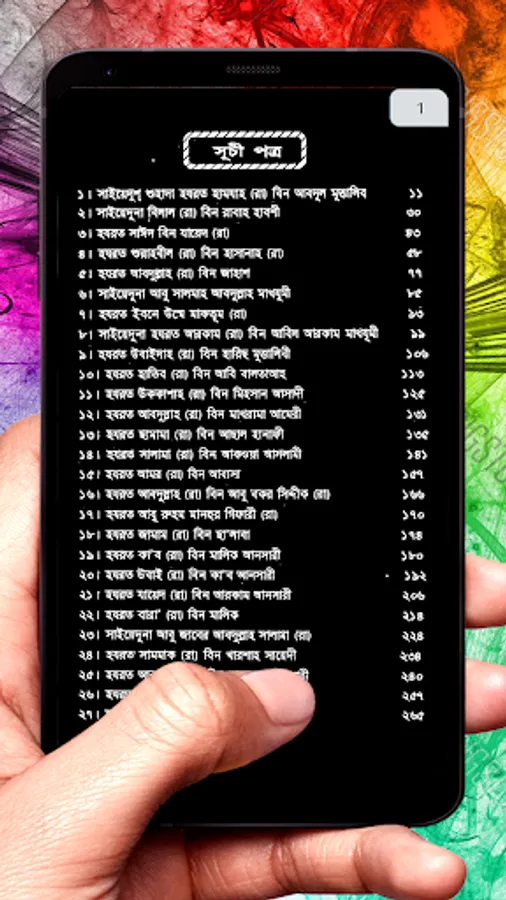 1
সূচী পত্র
১। সাইয়েদুশ শুহাদা হযরত হামযাহ (রা) বিন আবদুল মুত্তালিব ১১
২। সাইয়েদুনা বিলাল (রা) বিন রাবাহ হাবশী ৩০
৩। হযরত সাঈদ বিন যায়েদ (রা) ৪৩
৪। হযরত শুরাহবীল (রা) বিন হাসানাহ (রা) ৫৮
৫। হযরত আবদুল্লাহ (রা) বিন জাহাশ ৭৭
৬। সাইয়েদুনা আবু সালমাহ আবদুল্লাহ মাখযুমী ৮৫
৭। হযরত ইবনে উম্মে মাকতুম (রা) ৯৩
৮। সাইয়েদুনা হযরত আরকাম (রা) বিন আবিল আরকাম মাখযুমী ৯৯
৯। হযরত উবাইদাহ (রা) বিন হারিছ মুত্তালিবী ১০৬
১০। হযরত হাতিব (রা) বিন আবি বালতাআহ ১১৩
১১। হযরত উককাশাহ (রা) বিন মিহসান আসাদী ১২৫
১২। হযরত আবদুল্লাহ (রা) বিন মাখরামা আমেরী ১৩১
১৩। হযরত ছামামা (রা) বিন আছাল হানাফী ১৩৫
১৪। হযরত সালামা (রা) বিন আকওয়া আসলামী ১৪১
১৫। হযরত আমর (রা) বিন আবাসা ১৫৭
১৬। হযরত আবদুল্লাহ (রা) বিন আবু বকর সিদ্দীক (রা) ১৬৬
১৭। হযরত আবু রুহম মানহুর গিফারী (রা) ১৭০
১৮। হযরত জামাম (রা) বিন ছা'লাবা ১৭৪
১৯। হযরত কা'ব (রা) বিন মালিক আনসারী ১৮০
২০। হযরত উবাই (রা) বিন কা'ব আনসারী ১৯২
২১। হযরত যায়েদ (রা) বিন আরকাম আনসারী ২০৬
২২। হযরত বারা' (রা) বিন মালিক ২১৪
২৩। সাইয়েদুনা আবু জাবের আবদুল্লাহ সালামা (রা) ২২৪
২৪। হযরত সাম্মাক (রা) বিন খারশাহ সায়েদী ২৩৪
২৫। হযরত ২৪০
২৬। হযরত ২৫৭
২৭। ২৬৫